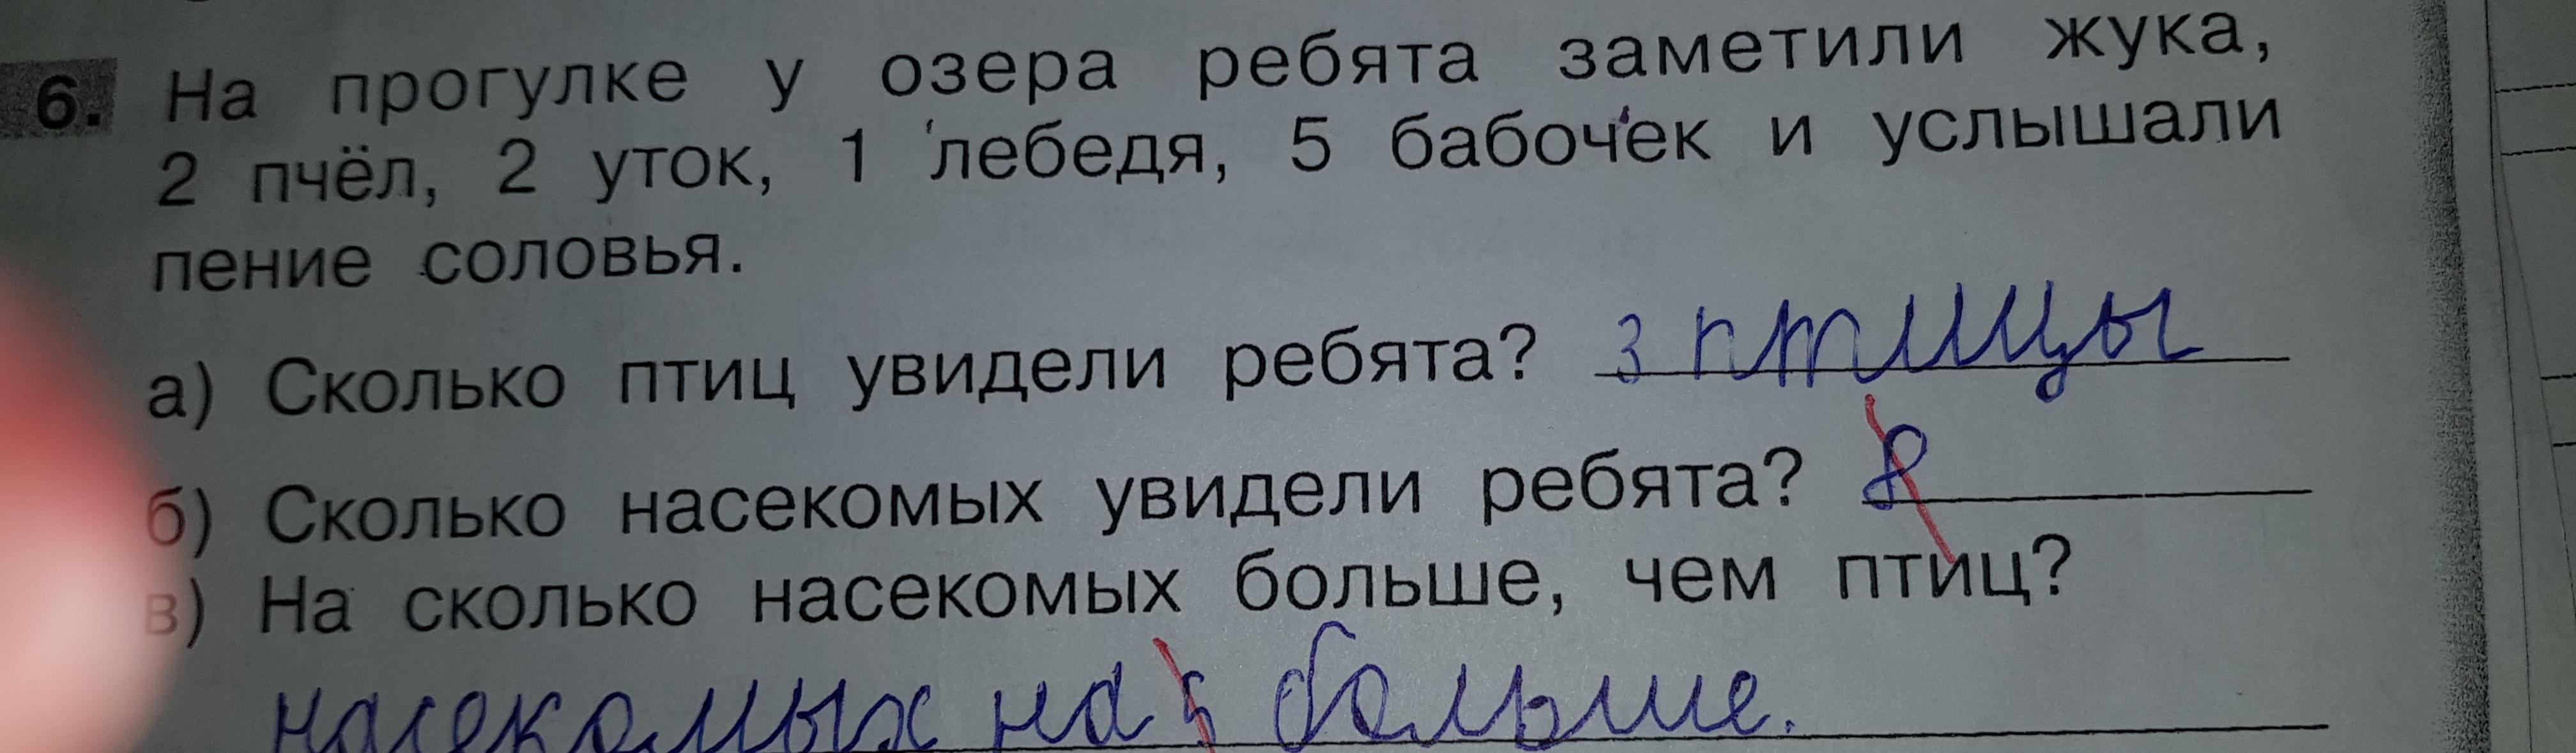 6. На прогулке у озера ребята заметили жука,
2 пчёл, 2 уток, 1 лебедя, 5 бабочек и услышали
пение соловья.
а) Сколько птиц увидели ребята? 3 птицы
б) Сколько насекомых увидели ребята? 8
в) На сколько насекомых больше, чем птиц?
насекомых на 5 больше.